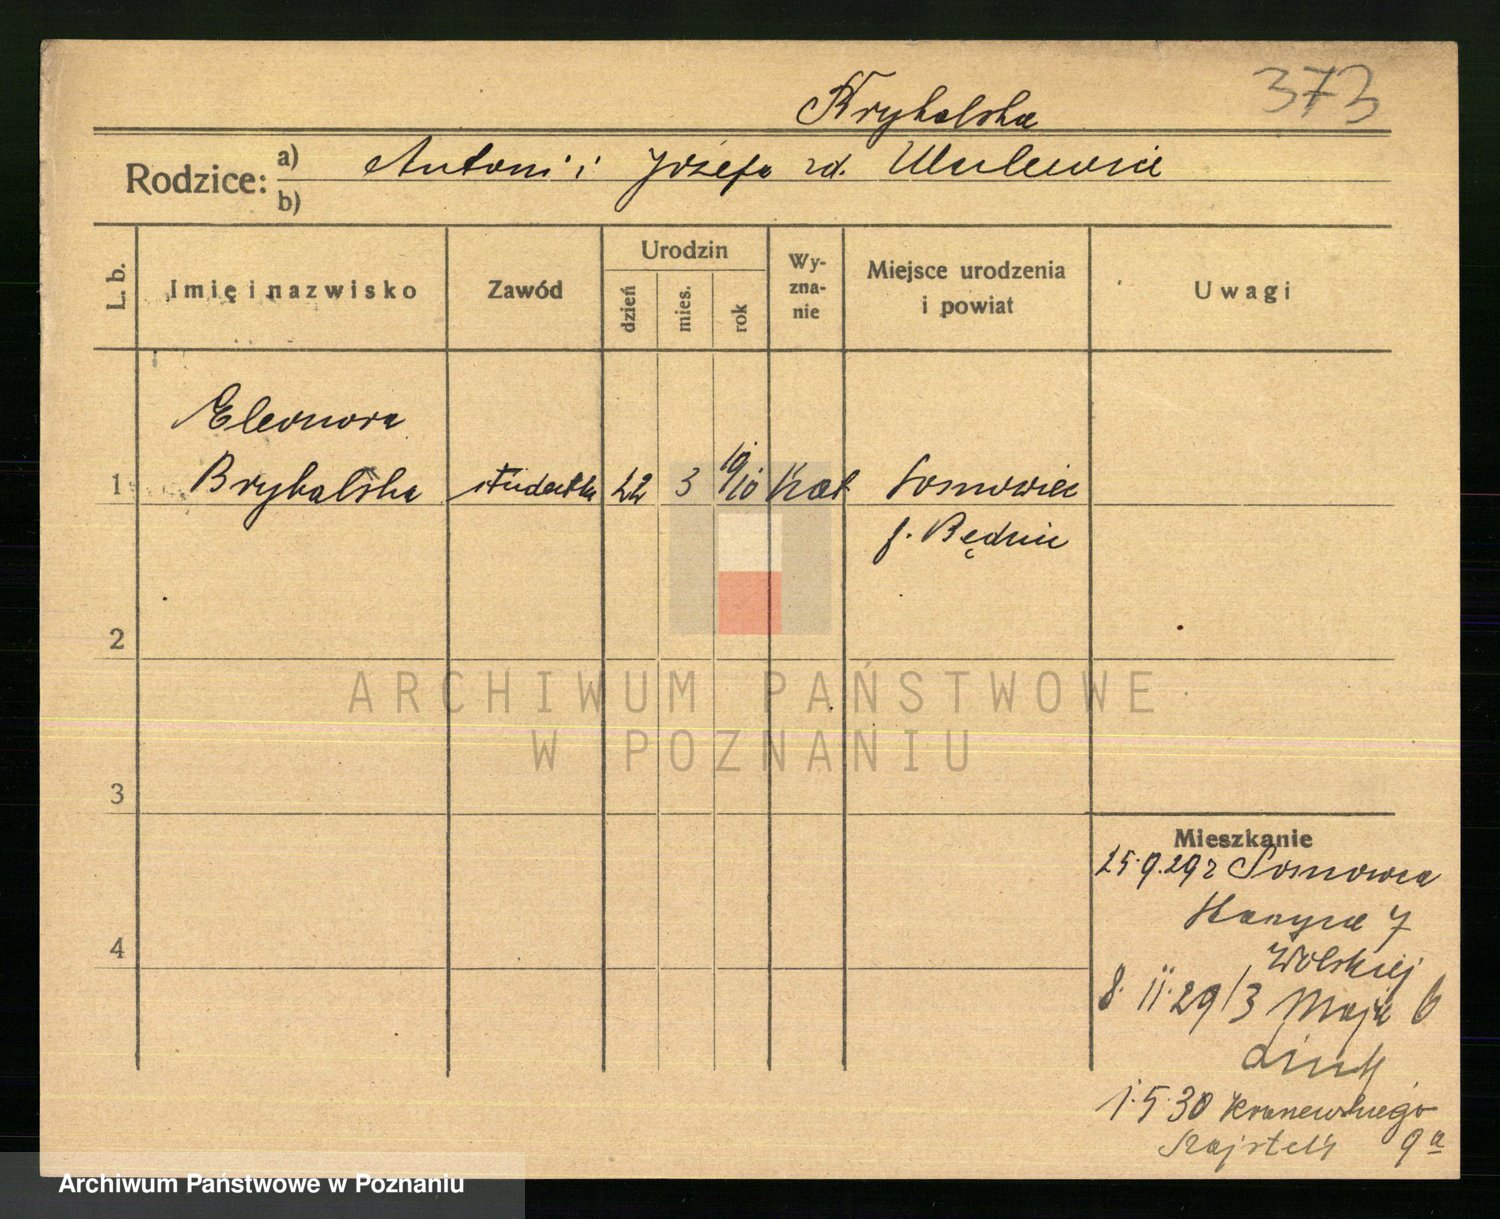 373
Brykalska
Rodzice: a) Antoni i Józefa zd.
b)
L. b. Imię i nazwisko Zawód Urodzin dzień mies. rok Wyznanie Miejsce urodzenia i powiat Uwagi
Eleonora
1 Brykalska studentka 22 3 19/10 kat Sosnowiec
p. Będzin
2
3
4
Mieszkanie
25.9.29 z Sosnowca
7
Wolskiej
8. II. 29/3 Maja 6
1.5.30
9a
ARCHIWUM PAŃSTWOWE
W POZNANIU
Archiwum Państwowe w Poznaniu